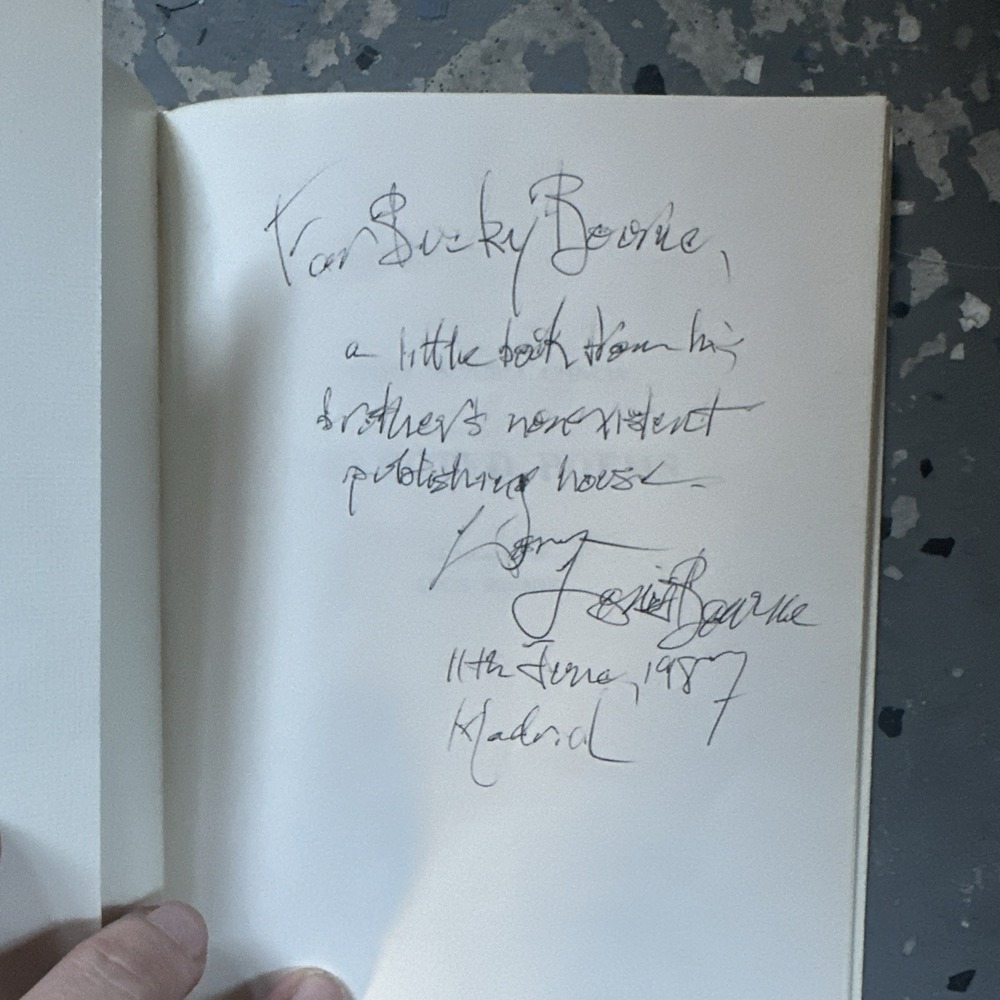 For Bucky Bourne,
a little book from his
brother's nonexistent
publishing house.
Bourne
11th June, 1987
Madrid